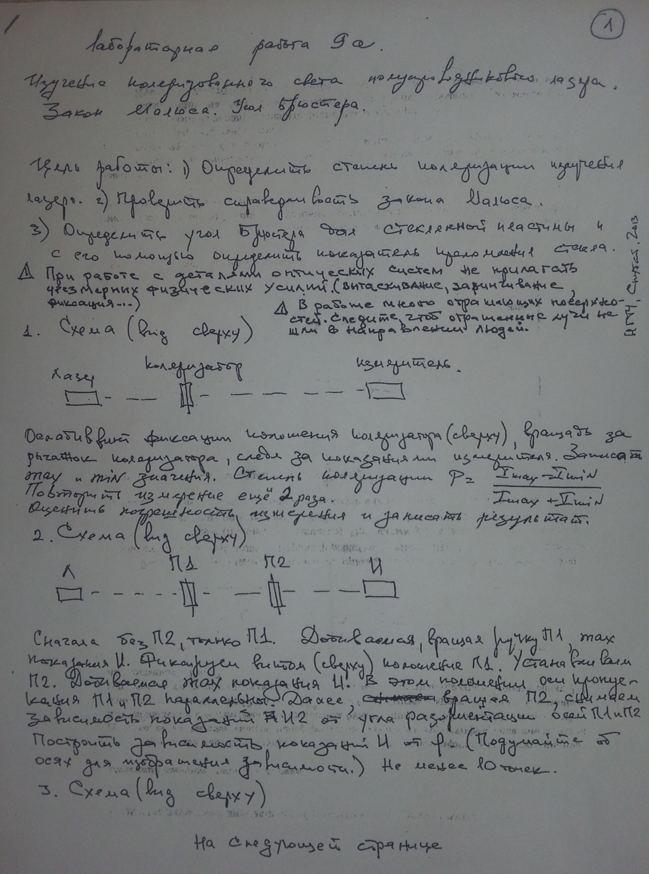 1
Лабораторная работа 9а.
Изучение поляризованного света полупроводникового лазера.
Закон Малюса. Угол Брюстера.
Цель работы: 1) Определить степень поляризации излучения
лазера. 2) Проверить справедливость закона Малюса.
3) Определить угол Брюстера для стеклянной пластины и
с его помощью определить показатель преломления стекла.
⚠ При работе с деталями оптических систем не прилагать
чрезмерных физических усилий. (вытаскивание, завинчивание,
фиксация...)
⚠ В работе много отражающих поверхно-
стей. Следите, чтоб отраженные лучи не
шли в направлении людей.
2013
1. Схема (вид сверху)
Лазер поляризатор измеритель.
Ослабив винт фиксации положения поляризатора (сверху), вращать за
рычажок поляризатора, следя за показаниями измерителя. Записать
max и min значения. Степень поляризации P = (Imax - Imin) / (Imax + Imin)
Повторить измерение ещё 2 раза.
Оценить погрешность измерения и записать результат.
2. Схема (вид сверху)
Л П1 П2 И
Сначала без П2, только П1. Добиваемся, вращая ручку П1, max
показания И. Фиксируем винтом (сверху) положение П1. Устанавливаем
П2. Добиваемся max показания И. В этом положении оси пропус-
кания П1 и П2 параллельны. Далее, вращая П2, снимаем
зависимость показаний И от угла разориентации осей П1 и П2
Построить зависимость показаний И от φ. (Подумайте об
осях для изображения зависимости.) Не менее 10 точек.
3. Схема (вид сверху)
На следующей странице